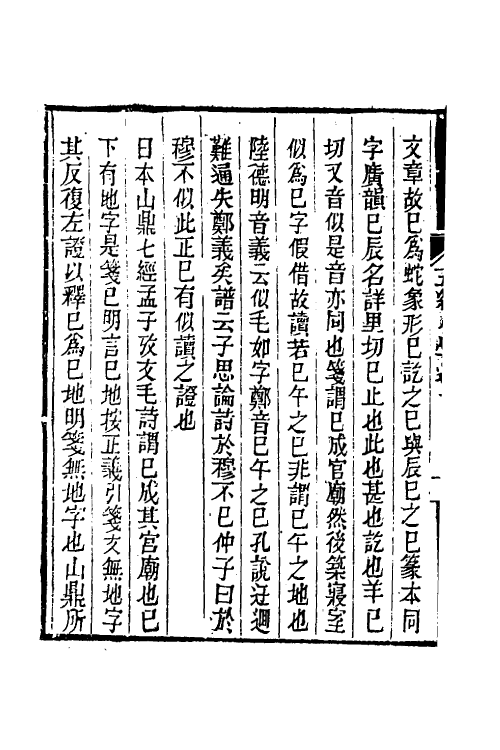 文章故巳爲蛇象形巳訖之巳與辰巳之巳篆本同
字廣韻巳辰名詳里切巳止也此也甚也訖也羊巳
切又音似是音亦同也箋謂巳成宫廟然後築寢室
似爲巳字假借故讀若巳午之巳非謂巳午之地也
陸德明音義云似毛如字鄭音巳午之巳孔說迂迴
難通失鄭義矣譜云子思論詩於穆不巳仲子曰於
穆不似此正巳有似讀之證也
日本山鼎七經孟子攷文毛詩謂巳成其宮廟也巳
下有地字是箋巳明言巳地按正義引箋文無地字
其反復左證以釋巳爲巳地明箋無地字也山鼎所